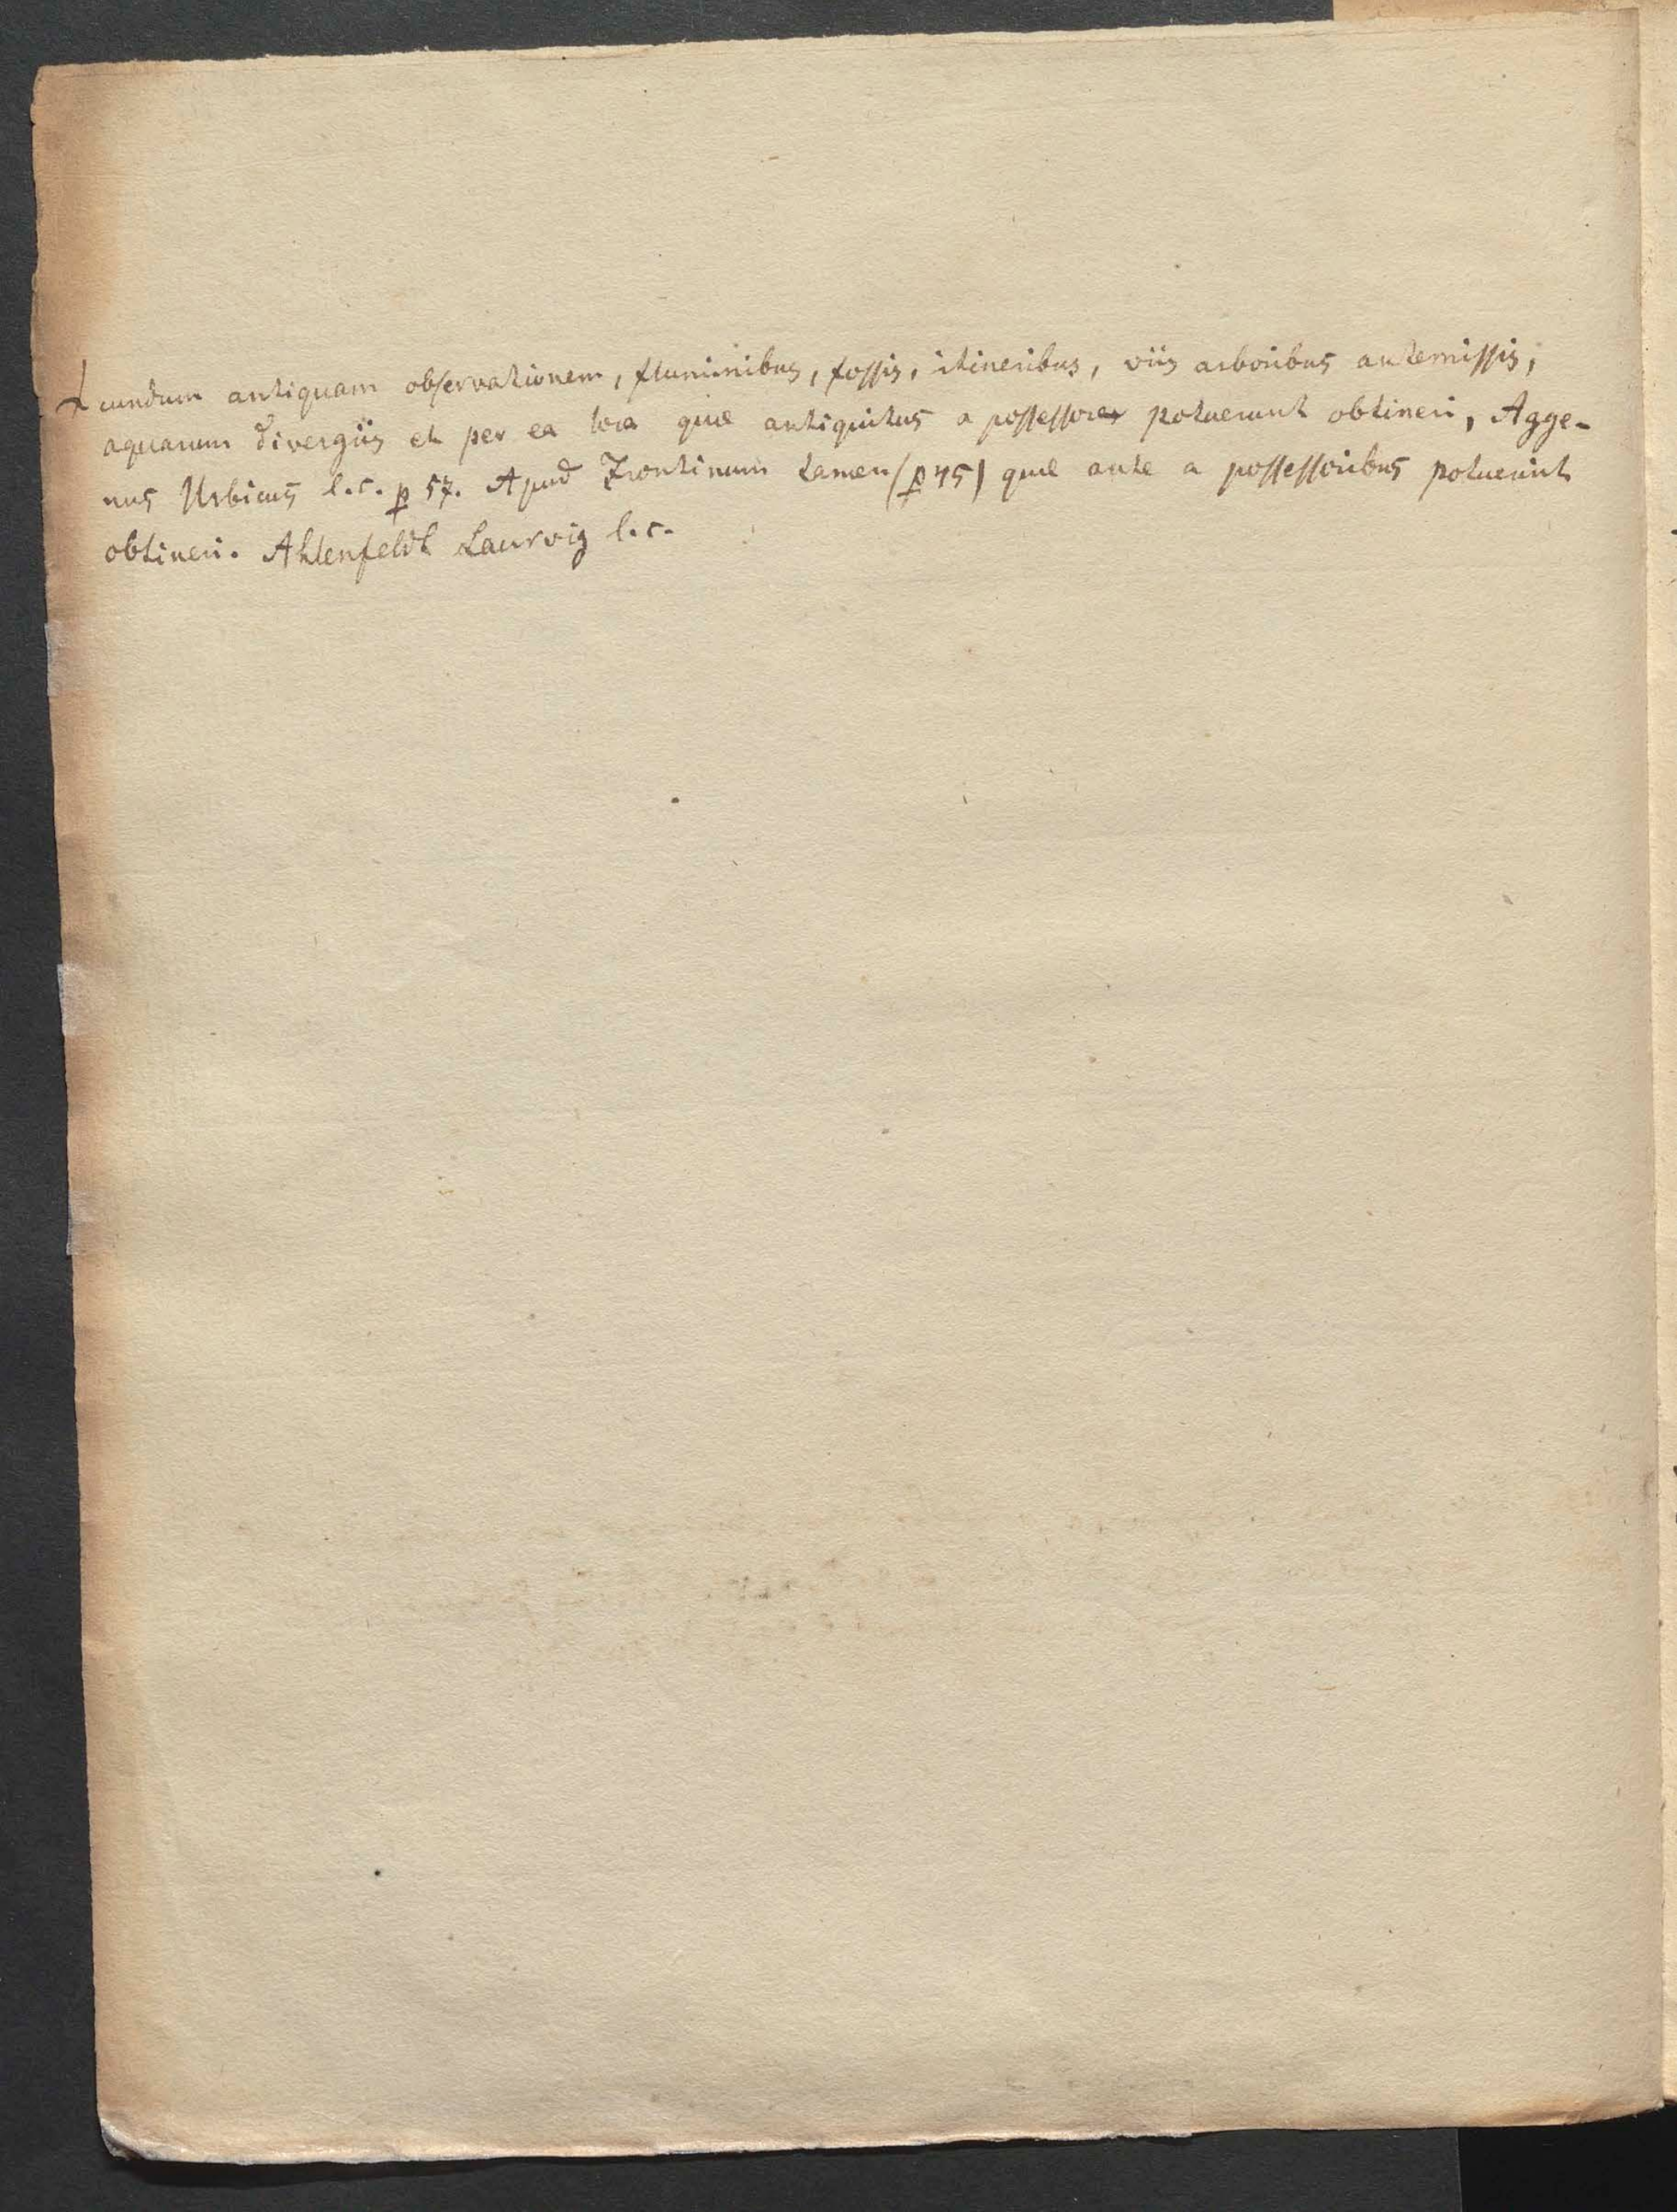 cundum antiquam observationem, fluminibus, fossis, itineribus, viis arboribus antemissis,
aquarum divergiis et per ea loca quæ antiquitus a possessore potuerunt obtineri, Agge-
nus Urbicus l.c. p 57. Apud Frontinum tamen (p 45) quæ ante a possessoribus potuerunt
obtineri. Ahlenfeldt Laurvig l.c.